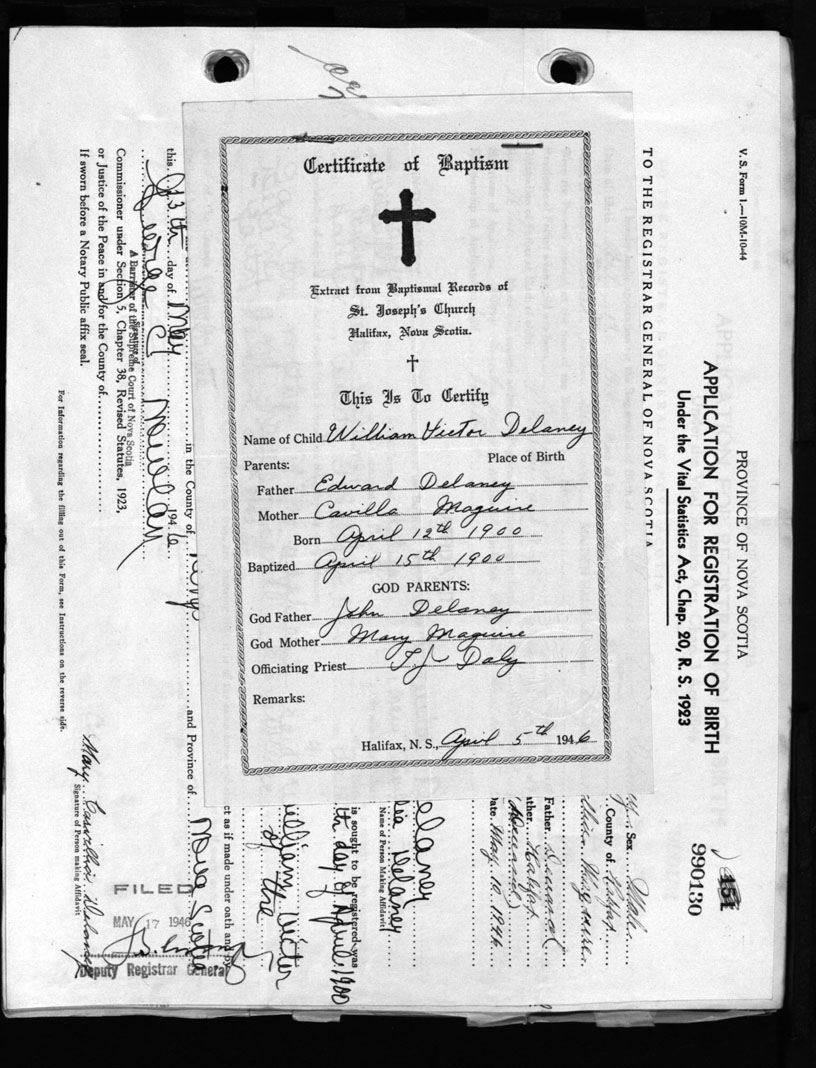 Certificate of Baptism
Extract from Baptismal Records of
St. Joseph's Church
Halifax, Nova Scotia.
This Is To Certify
Name of Child William Victor Delaney
Parents: Place of Birth
Father Edward Delaney
Mother Cavilla Maguire
Born April 12th 1900
Baptized April 15th 1900
GOD PARENTS:
God Father John Delaney
God Mother Mary Maguire
Officiating Priest T.J. Daly
Remarks:
Halifax, N. S., April 5th 1946
V. S. Form 1.—10M-10-44
PROVINCE OF NOVA SCOTIA
APPLICATION FOR REGISTRATION OF BIRTH
Under the Vital Statistics Act, Chap. 20, R. S. 1923
151
990130
TO THE REGISTRAR GENERAL OF NOVA SCOTIA
Sex Male
County of Halifax
Father
Date May 10 1946
elaney
Delaney
Name of Person Making Affidavit
is sought to be registered was
th day of April 1900
illiam Victor
of the
ct as if made under oath and by
in the County of Kings and Province of Nova Scotia
this 13th day of May 1946
A Barrister of the Supreme Court of Nova Scotia
Commissioner under Section 5, Chapter 38, Revised Statutes, 1923,
or Justice of the Peace in and/for the County of
If sworn before a Notary Public affix seal.
For Information regarding the filling out of this Form, see Instructions on the reverse side.
Mary Cavilla Delaney
Signature of Person making Affidavit
FILED
MAY 17 1946
Deputy Registrar General